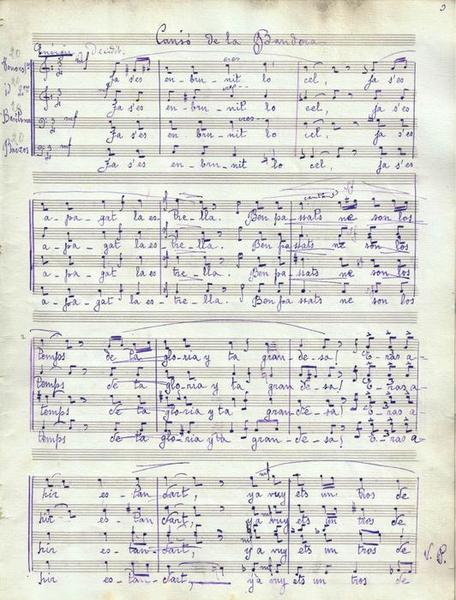 Cansó de la Bandera
Ja s'es en-bru-nit lo cel, Ja s'es
Ja s'es en-bru-nit lo cel, Ja s'es
Ja s'es en-bru-nit lo cel, Ja s'es
Ja s'es en-bru-nit lo cel, Ja s'es
a-pa-gat la es-tre-lla. Bon pa-ssats ne son los
a-pa-gat la es-tre-lla. Bon pa-ssats ne son los
a-pa-gat la es-tre-lla. Bon pa-ssats ne son los
a-pa-gat la es-tre-lla. Bon pa-ssats ne son los
temps de ta glo-ria y ta gran-de-sa! E-ras a-
temps de ta glo-ria y ta gran-de-sa! E-ras a-
temps de ta glo-ria y ta gran-de-sa! E-ras a-
temps de ta glo-ria y ta gran-de-sa! E-ras a-
hir es-tan-dart, y a vuy ets un tros de
hir es-tan-dart, y a vuy ets un tros de
hir es-tan-dart, y a vuy ets un tros de
hir es-tan-dart, y a vuy ets un tros de
V. S.